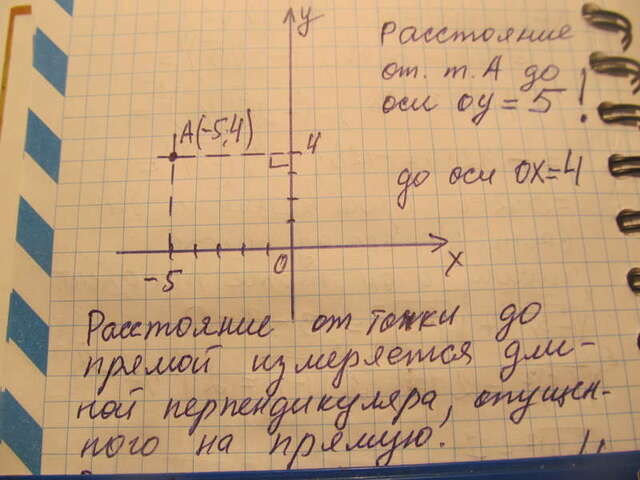 y
Расстояние
от. т. А до
оси оу = 5 !
A(-5,4)
4
до оси ох=4
-5
0
x
Расстояние от точки до
прямой измеряется дли-
ной перпендикуляра, опущен-
ного на прямую.